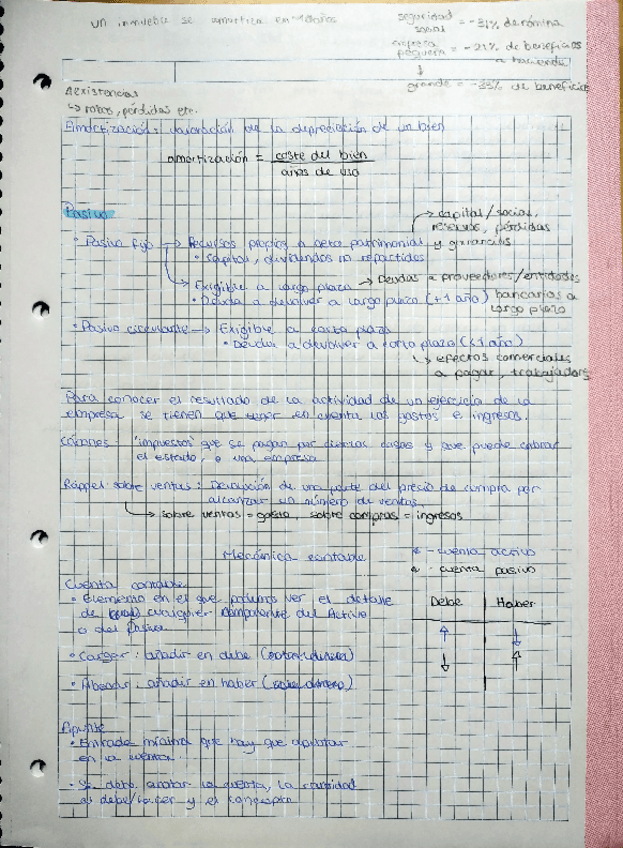 un inmueble se amortiza en años
seguridad social = -31% de nómina
empresa pequeña = -21% de beneficios a hacienda
grande = -33% de beneficios
existencias
↳ robos, pérdidas etc.
Amortización: valoración de la depreciación de un bien
amortización = coste del bien
años de uso
Pasivo
→ capital/social,
reservas, pérdidas
• Pasivo fijo → Recursos propios o neto patrimonial y ganancias
• Capital, dividendos no repartidos
→ Exigible a largo plazo → Deudas a proveedores/entidades
• Deuda a devolver a largo plazo (+1 año) bancarias a
largo plazo
• Pasivo circulante → Exigible a corto plazo
• Deuda a devolver a corto plazo (<1 año)
↳ efectos comerciales
a pagar, trabajadores
Para conocer el resultado de la actividad de un ejercicio de la
empresa se tienen que tener en cuenta los gastos e ingresos.
Cánones: "impuestos" que se pagan por ciertas cosas y que puede cobrar
el estado, o una empresa
Ráppel sobre ventas: Devolución de una parte del precio de compra por
alcanzar un número de ventas
→ sobre ventas = gasto, sobre compras = ingresos
Mecánica contable
- cuenta activo
- cuenta pasivo
Cuenta contable
• Elemento en el que podemos ver el detalle
de cualquier componente del Activo
o del Pasivo
Debe | Haber
↑ ↓
↓ ↑
• Cargar: añadir en debe (entra dinero)
• Abonar: añadir en haber (sale dinero)
Apunte
• Entrada mínima que hay que apuntar
en la cuenta
• Se debe anotar la cuenta, la cantidad
al debe/haber y el concepto